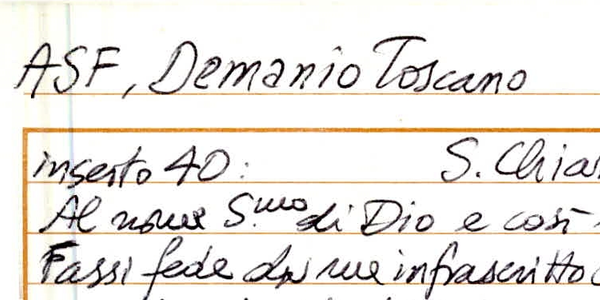 ASF, Demanio Toscano
inserto 40: S. Chiar
Al nome S.mo di Dio e così
Fassi fede da me infrascritto